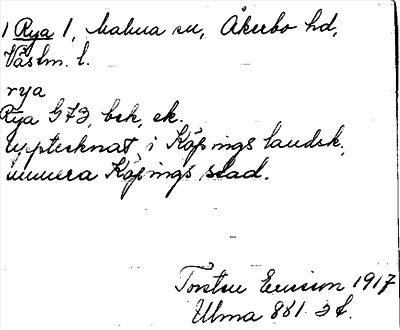 1 Rya 1, Malma sn, Åkerbo hd,
Västm. l.
rya
Rya G73, bek, ek.
upptecknat i Köpings landsk.,
numera Köpings stad.
Torsten Ericsson 1917
Ulma 881:3 f.